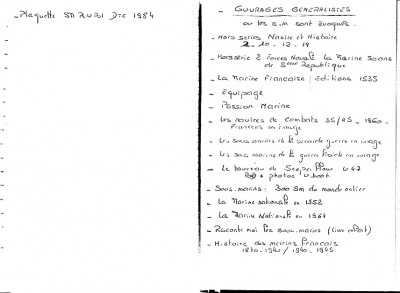 - Plaquette SM RUBI Dte 1984
- OUVRAGES GENERALISTES
ou les s.m sont évoqués.
- Hors series Navire et Histoire
2. 10. 12. 14
- Hors série 2 Forces Navale La Marine 50 ans
de 5ème Republique
- La Marine Francaise Editions 1535
- Equipage
- Passion Marine
- Les navires de combats 35/45 - 1960
Francais en image
- Les sous marins et la seconde guerre en image
- Les sous marins de la guerre froide en image
- Le taureau de Scapa Flow U 47
+ photos U.boot
- Sous-marins: 300 Sm du monde entier
- La Marine nationale en 1952
- La Marine Nationale en 1964
- Raconte moi les sous-marins (livre enfant)
- Histoire des marins francais
1870-1940 / 1940-1945